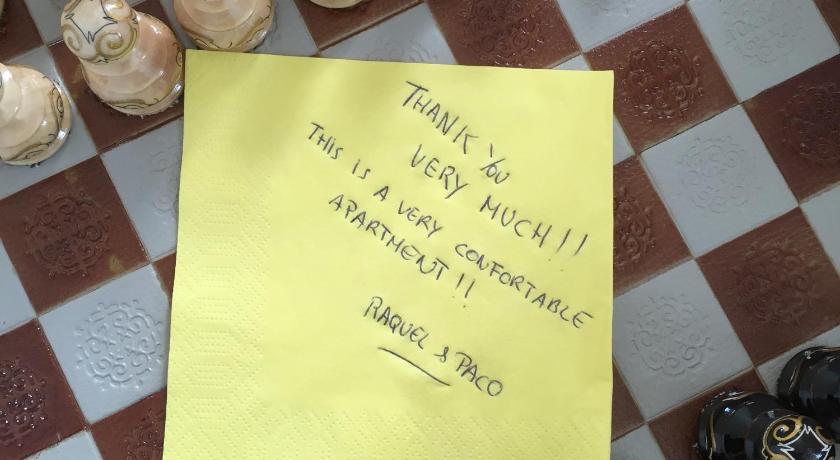 THANK YOU
VERY MUCH!!
THIS IS A VERY CONFORTABLE
APARTMENT!!
RAQUEL & PACO